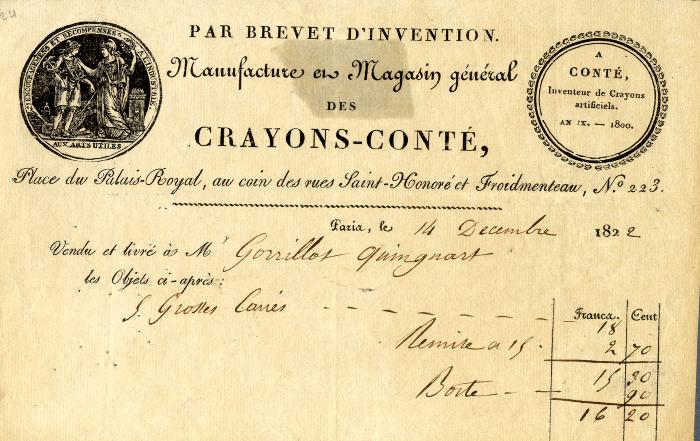 24
PAR BREVET D'INVENTION.
Manufacture et Magasin général
DES
CRAYONS-CONTÉ,
Place du Palais-Royal, au coin des rues Saint-Honoré et Froidmenteau, N.º 223.
ENCOURAGEMENS ET RÉCOMPENSES À L'INDUSTRIE
AUX ARTS UTILES
A
CONTÉ,
Inventeur de Crayons
artificiels.
AN IX. — 1800.
Paris, le 14 Decembre 1822
Vendu et livré à Mr Gorrillot Quinquart
les Objets ci-après:
Francs. Cent
5 Grosses Carrés - - - - - - - 18
Remise a 15. 2 70
15 30
Boite - - 90
16 20